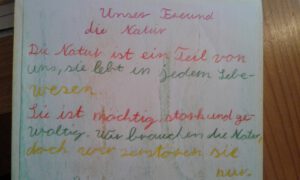 Unser Freund
die Natur
Die Natur ist ein Teil von
uns, sie lebt in jedem Lebe-
wesen.
Sie ist mächtig stark und ge-
waltig. Wir brauchen die Natur,
doch wir zerstören sie
nur.